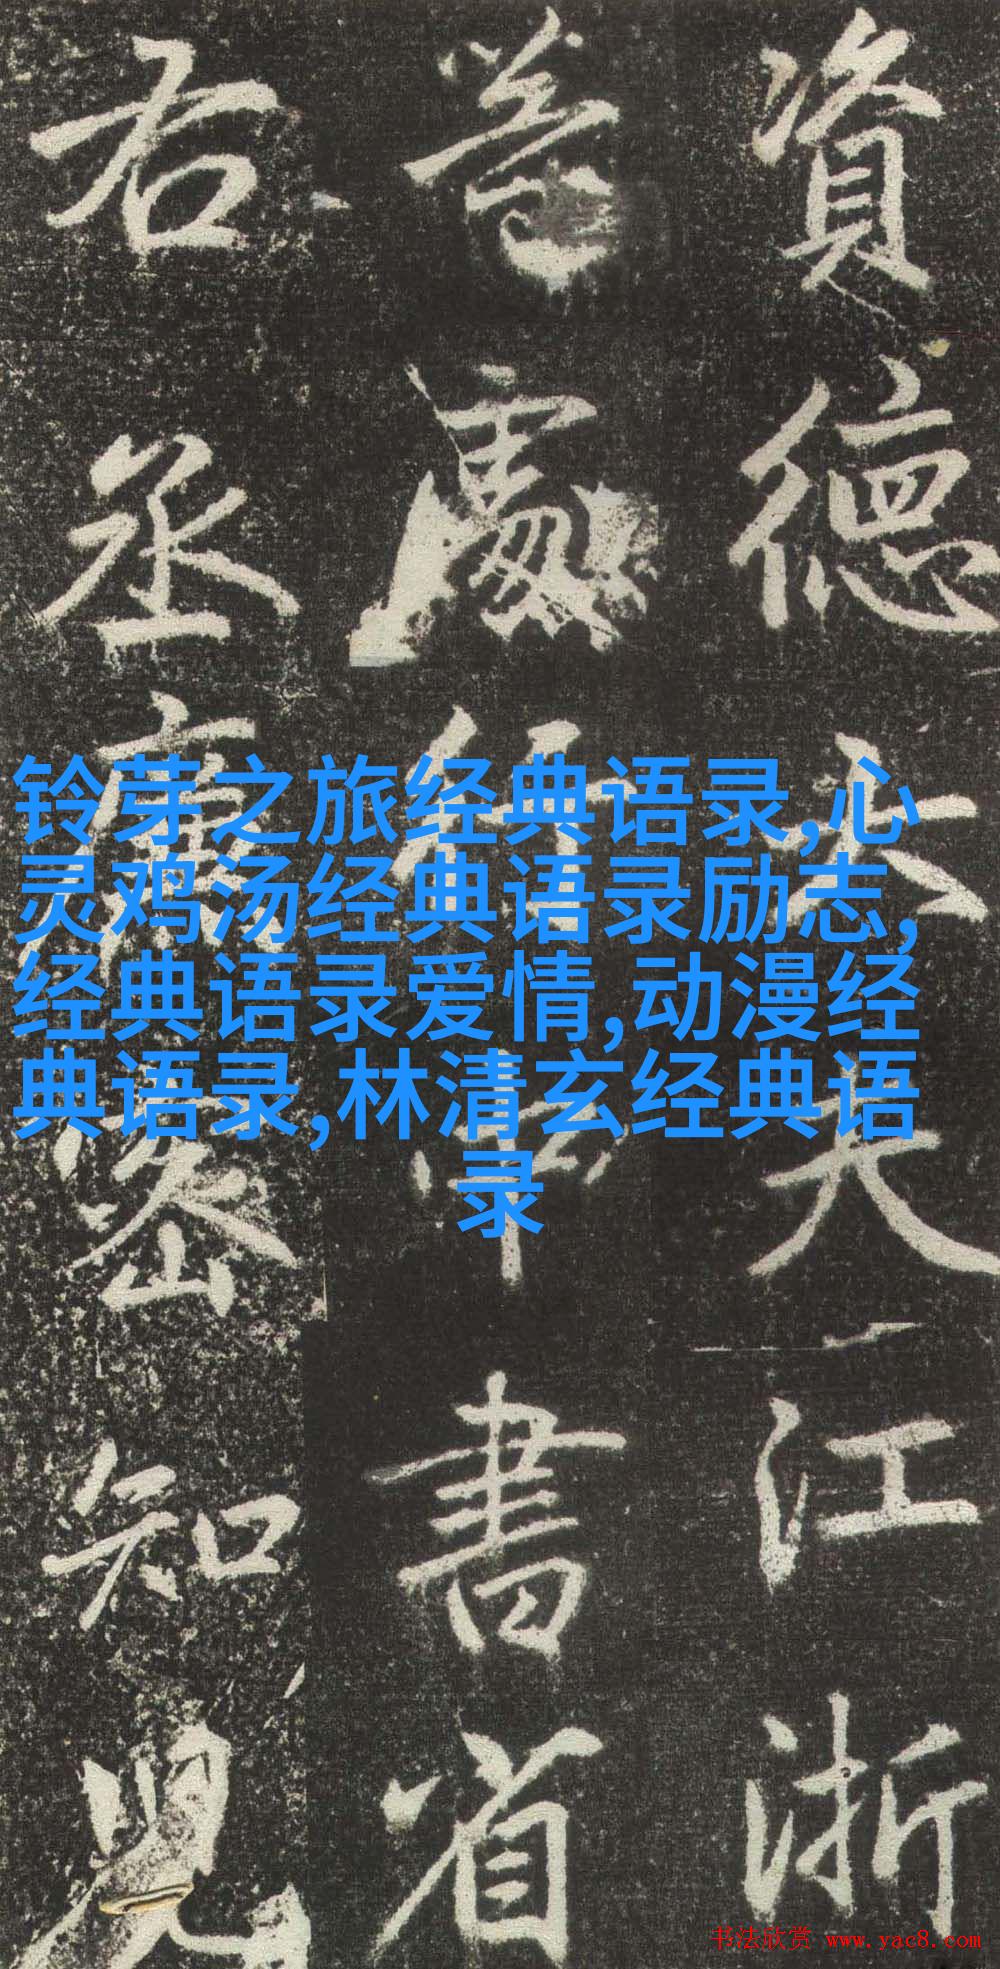 資德大夫江浙
等處行中書省
右丞廉密知兒
铃芽之旅经典语录,心
灵鸡汤经典语录励志,
经典语录爱情,动漫经
典语录,林清玄经典语
录
书法欣赏 www.yac8.com